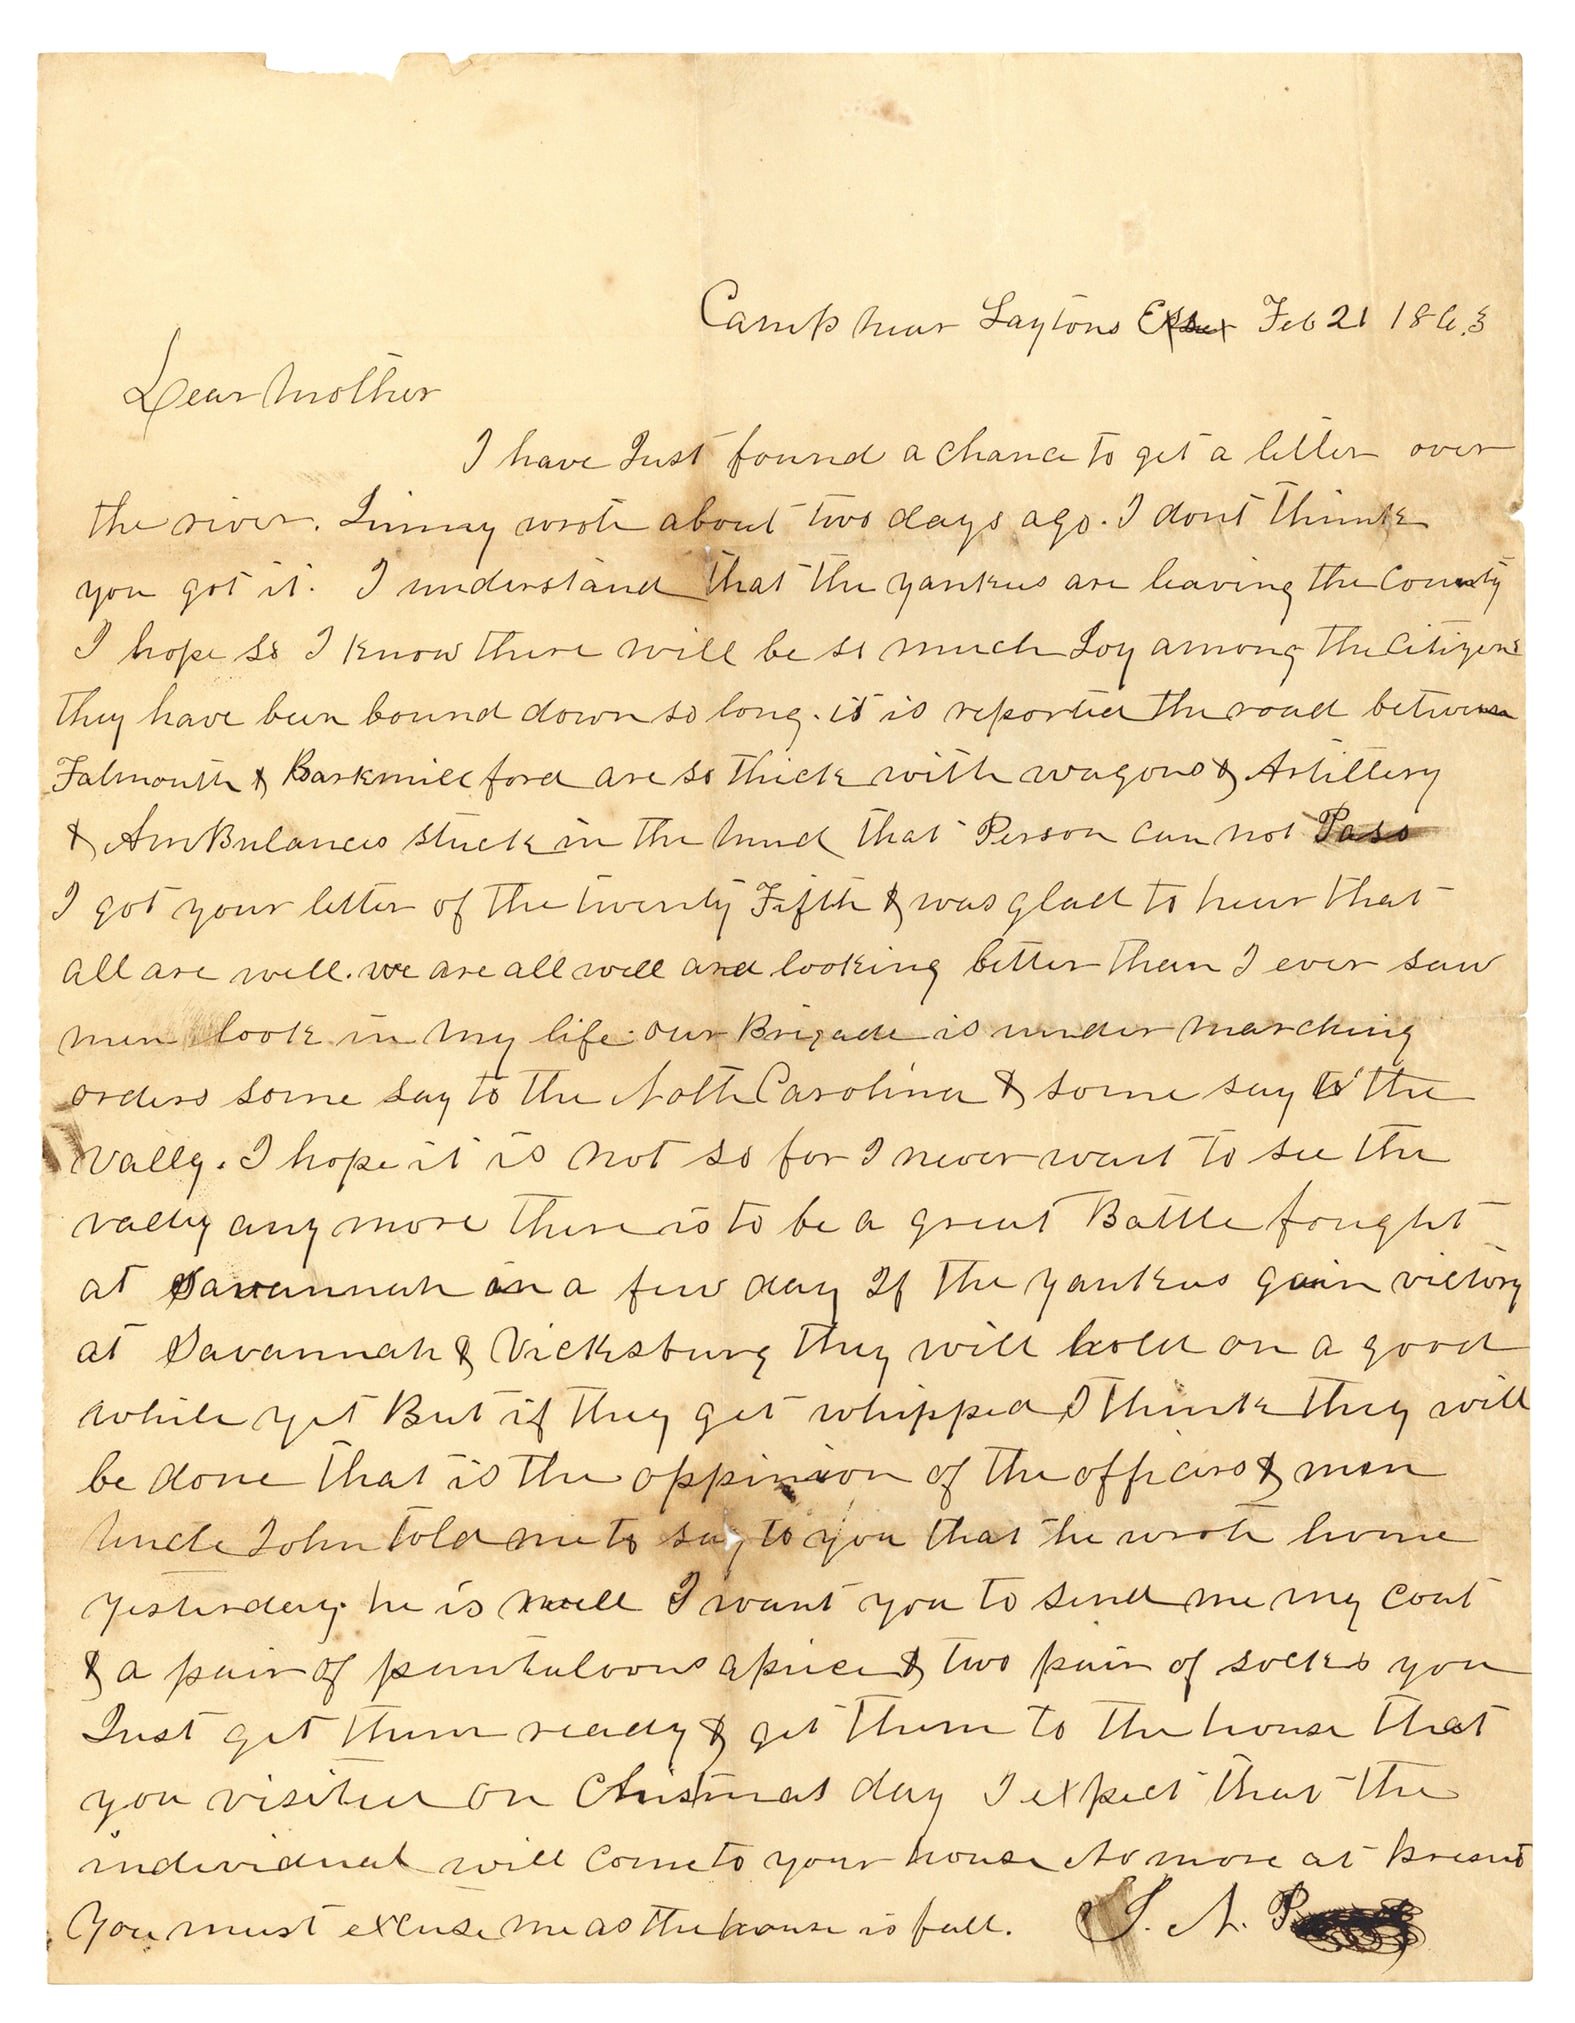 Camp near Laytons Essex Feb 21 1863
Dear Mother
I have Just found a chance to get a letter over
the river. Jinny wrote about two days ago. I dont think
you got it. I understand that the yankees are leaving the County
I hope so I know there will be so much Joy among the Citizens
they have been bound down so long. it is reported the road between
Falmouth & Barkmill ford are so thick with wagons & Artillery
& AmBulances stuck in the mud that Person can not Pass
I got your letter of the twenty Fifth & was glad to hear that
all are well. we are all well and looking better than I ever saw
men look in my life. our Brigade is under marching
orders some say to the Noth Carolina & some say to the
vally. I hope it is not so for I never want to see the
vally any more there is to be a great Battle fought
at Savannah in a few day If the yankees gain victory
at Savannah & Vicksburg they will hold on a good
while yet But if they get whipped I think they will
be done that is the oppinion of the officers & men
Uncle John told me to say to you that he wrote home
yesterday. he is well I want you to send me my coat
& a pair of pantaloons apiece & two pair of socks you
Just get them ready & get them to the house that
you visited on Christmas day I expect that the
individual will come to your house No more at present
You must excuse me as the house is full. S. A. P